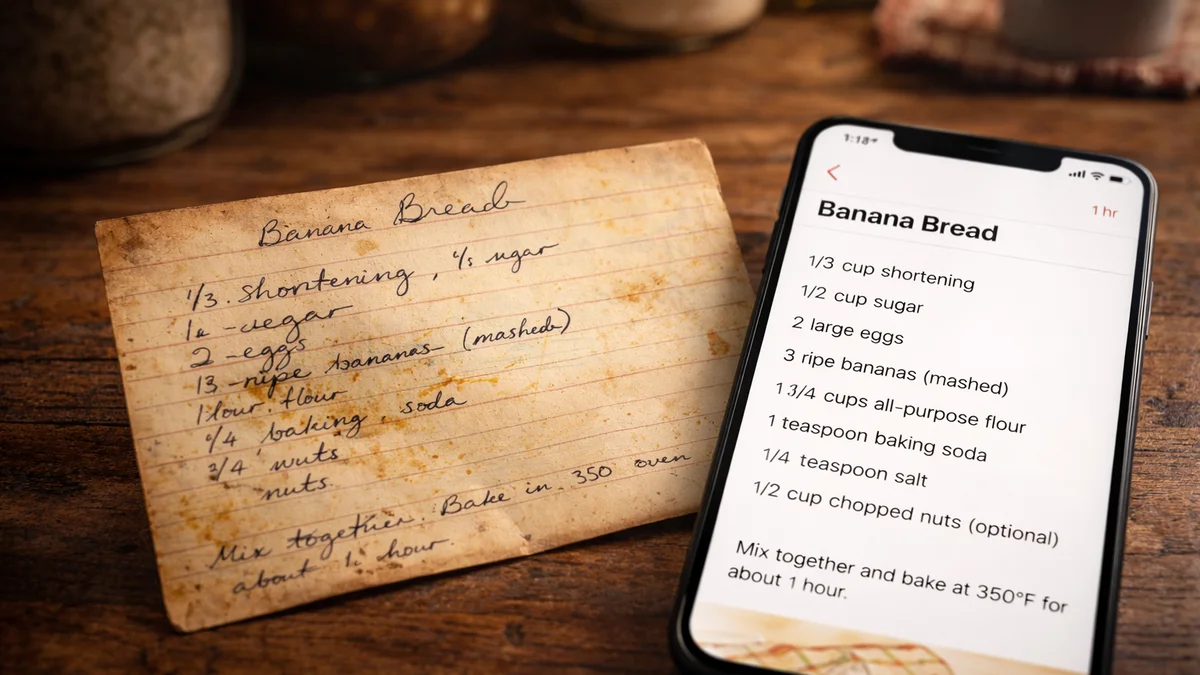 Banana Bread
1/3. shortening, 1/5 sugar
2 - eggs
13 - ripe bananas (mashed)
flour
baking, soda
3/4 nuts
nuts
Mix together. Bake in 350 oven
about hour.
1:18
1 hr
Banana Bread
1/3 cup shortening
1/2 cup sugar
2 large eggs
3 ripe bananas (mashed)
1 3/4 cups all-purpose flour
1 teaspoon baking soda
1/4 teaspoon salt
1/2 cup chopped nuts (optional)
Mix together and bake at 350°F for
about 1 hour.